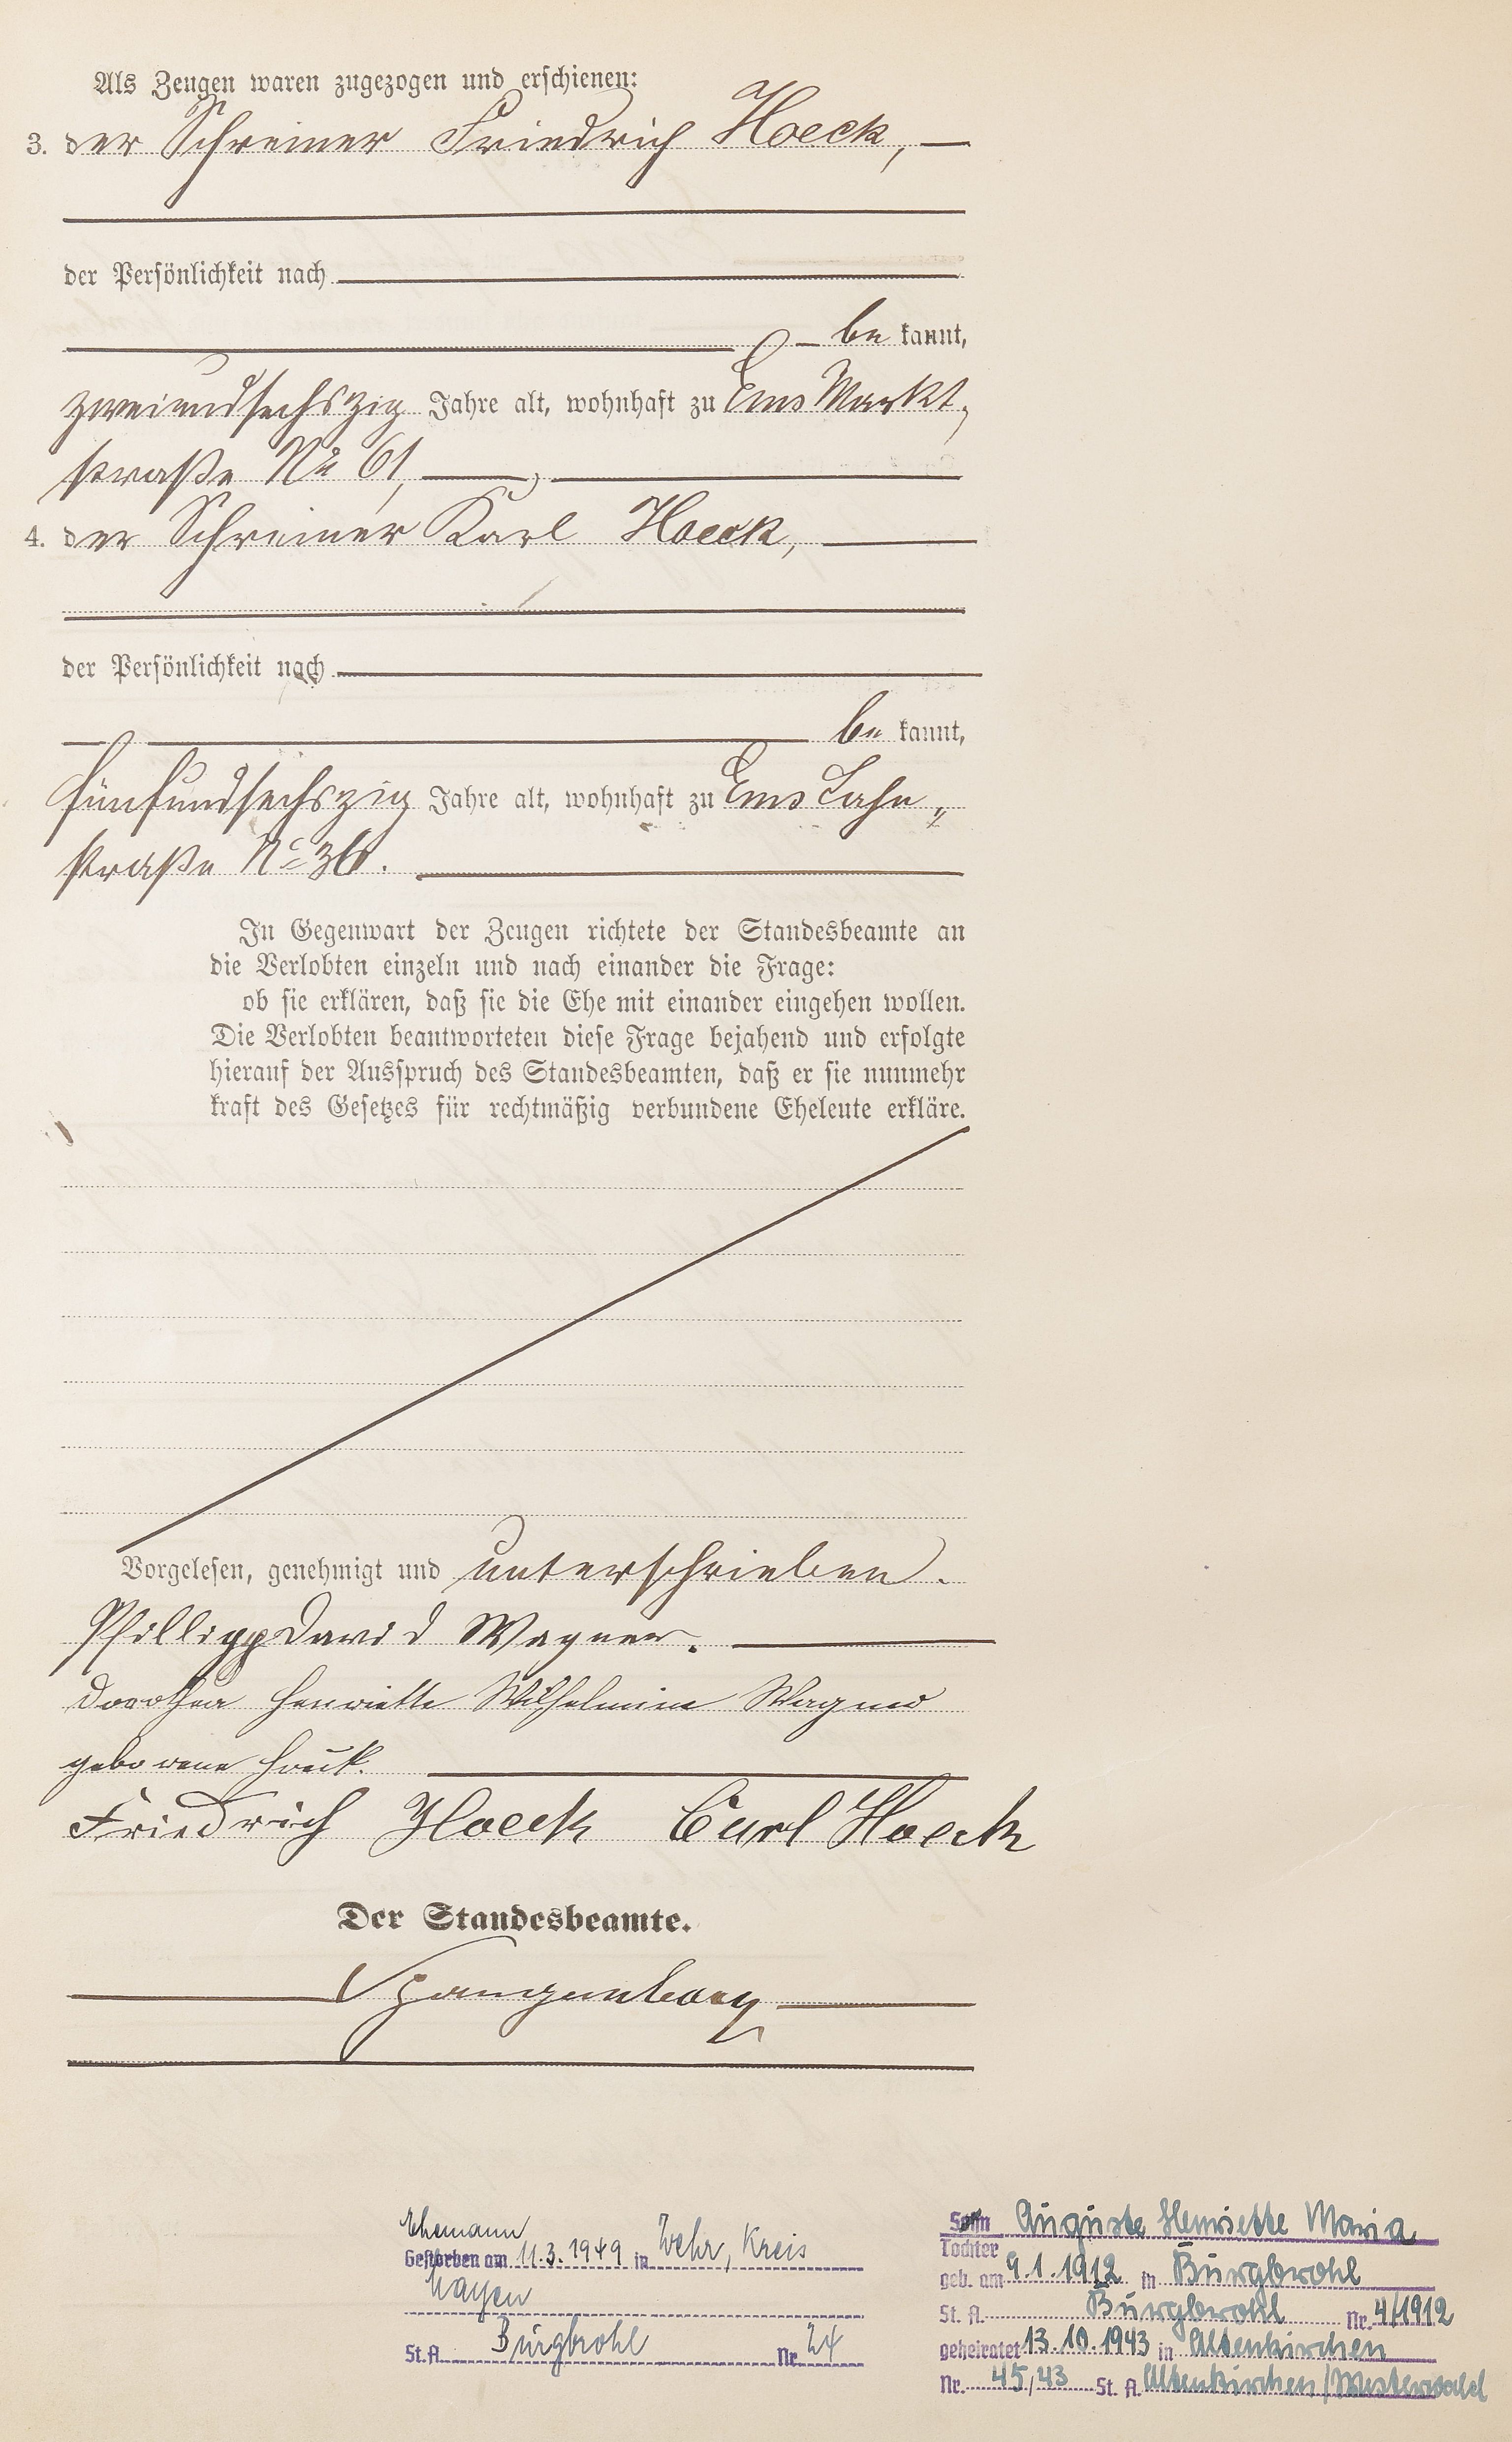 Als Zeugen waren zugezogen und erschienen:
3. der Schreiner Friedrich Hoeck,
der Persönlichkeit nach
be kannt,
zweiundsechszig Jahre alt, wohnhaft zu Ems Markt,
straße No 61,
4. der Schreiner Karl Hoeck,
der Persönlichkeit nach
be kannt,
fünfundsechszig Jahre alt, wohnhaft zu Ems Lahn„
straße No 36.
In Gegenwart der Zeugen richtete der Standesbeamte an
die Verlobten einzeln und nach einander die Frage:
ob sie erklären, daß sie die Ehe mit einander eingehen wollen.
Die Verlobten beantworteten diese Frage bejahend und erfolgte
hierauf der Ausspruch des Standesbeamten, daß er sie nunmehr
kraft des Gesetzes für rechtmäßig verbundene Eheleute erkläre.
Vorgelesen, genehmigt und unterschrieben.
Phillipp David Wagner.
Dorothea Henriette Wilhelmine Wagner
geborene Hoeck.
Friedrich Hoeck Carl Hoeck
Der Standesbeamte.
Spangenberg
Ehemann
Gestorben am 11.3.1949 in Wehr, Kreis
Mayen
St.A. Burgbrohl Nr. 24
Sohn Auguste Henriette Maria
Tochter
geb. am 9.1.1912 in Burgbrohl
St. A. Burgbrohl Nr. 4/1912
geheiratet 13.10.1943 in Altenkirchen
Nr. 45/43 St. A. Altenkirchen/Westerwald